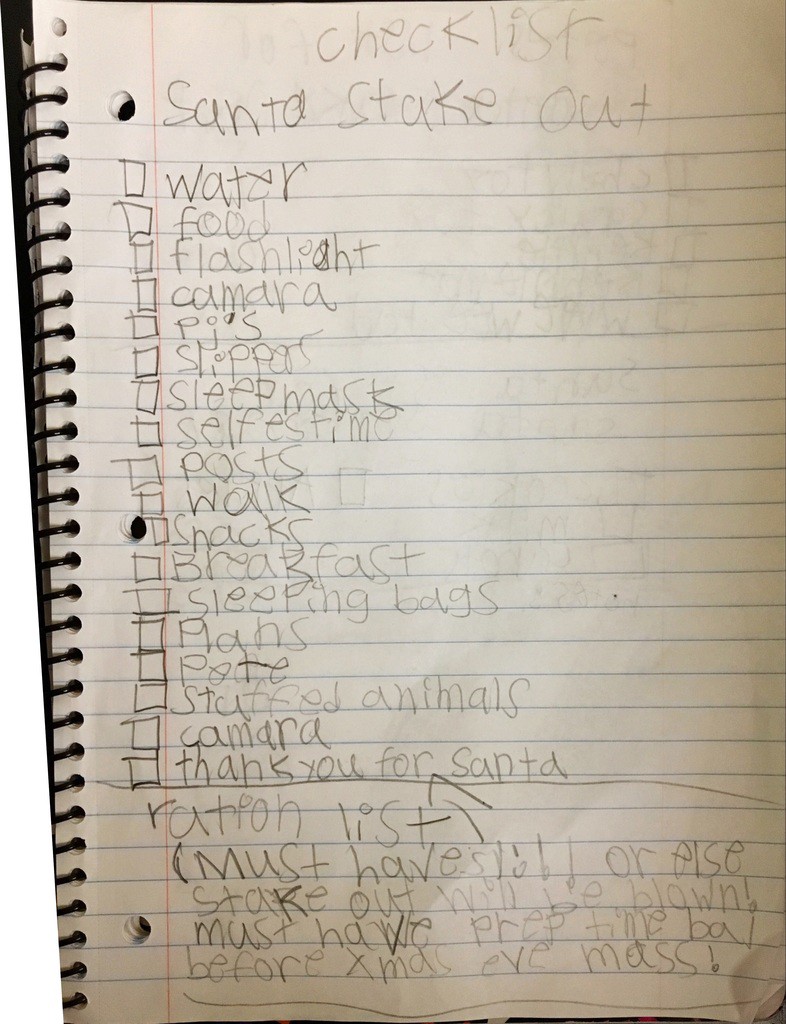 checklist
Santa stake out
water
food
flashlight
camara
pj's
slippers
sleepmask
selfestime
posts
walk
snacks
Breakfast
sleeping bags
Plans
Pote
stuffed animals
camara
thankyou for Santa
ration list
(Must haves!!!! or else
stake out will be blown!
must have prep time
before xmas eve mass!